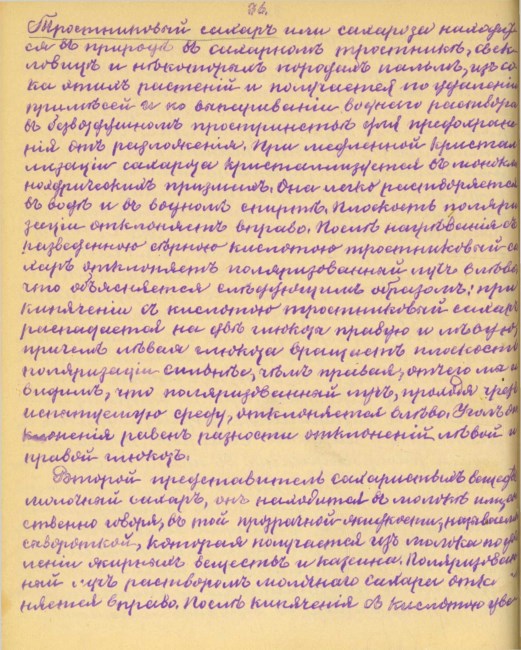 76.
Тростниковый сахаръ или сахароза находит
ся въ природѣ въ сахарномъ тростникѣ, свек
ловицѣ и нѣкоторыхъ породахъ пальмъ, изъ со
ка этихъ растеній и получается по удаленіи
примѣсей и по выпариваніи воднаго раствора
въ безвоздушномъ пространствѣ для предохране
нія отъ разложенія. При медленной кристал
лизаціи сахароза кристаллизуется въ монокли
ноэдрическихъ призмахъ. Она легко растворяется
въ водѣ и въ водномъ спиртѣ. Плоскость поляри
заціи отклоняетъ вправо. Послѣ нагрѣванія съ
разведенною сѣрною кислотою тростниковый са
харъ отклоняетъ поляризованный лучъ влѣво,
что объясняется слѣдующимъ образомъ: при
кипяченіи съ кислотою тростниковый сахаръ
распадается на двѣ глюкозы правую и лѣвую,
причемъ лѣвая глюкоза вращаетъ плоскость
поляризаціи сильнѣе, чѣмъ правая, отчего мы и
видимъ, что поляризованный лучъ, пройдя чрезъ
испытуемую среду, отклоняется влѣво. Уголъ от
клоненія равенъ разности отклоненій лѣвой и
правой глюкозъ.
Второй представитель сахаристыхъ веществъ
молочный сахаръ, онъ находится въ молокѣ или,
ственно говоря, въ той прозрачной жидкости, называемой
сывороткой, которая получается изъ молока по уда
леніи жирныхъ веществъ и казеина. Поляризован
ный лучъ растворомъ молочнаго сахара откло
няется вправо. Послѣ кипяченія съ кислотою уве